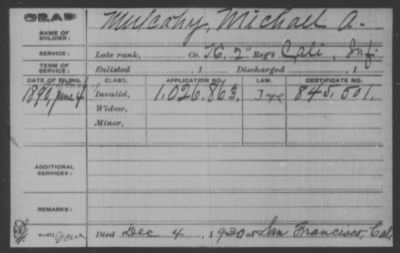 GRAP
NAME OF SOLDIER: Mulcahy, Michael A.
SERVICE: Late rank, Co. K. 2" Reg't Cali, Inf.
TERM OF SERVICE: Enlisted , 1 Discharged , 1
DATE OF FILING. CLASS. APPLICATION NO. LAW. CERTIFICATE NO.
1890, June 4 Invalid, 1,026,863. 845,501.
Widow,
Minor,
ADDITIONAL SERVICES:
REMARKS:
Died Dec 4, 1930 at San Francisco, Cal.